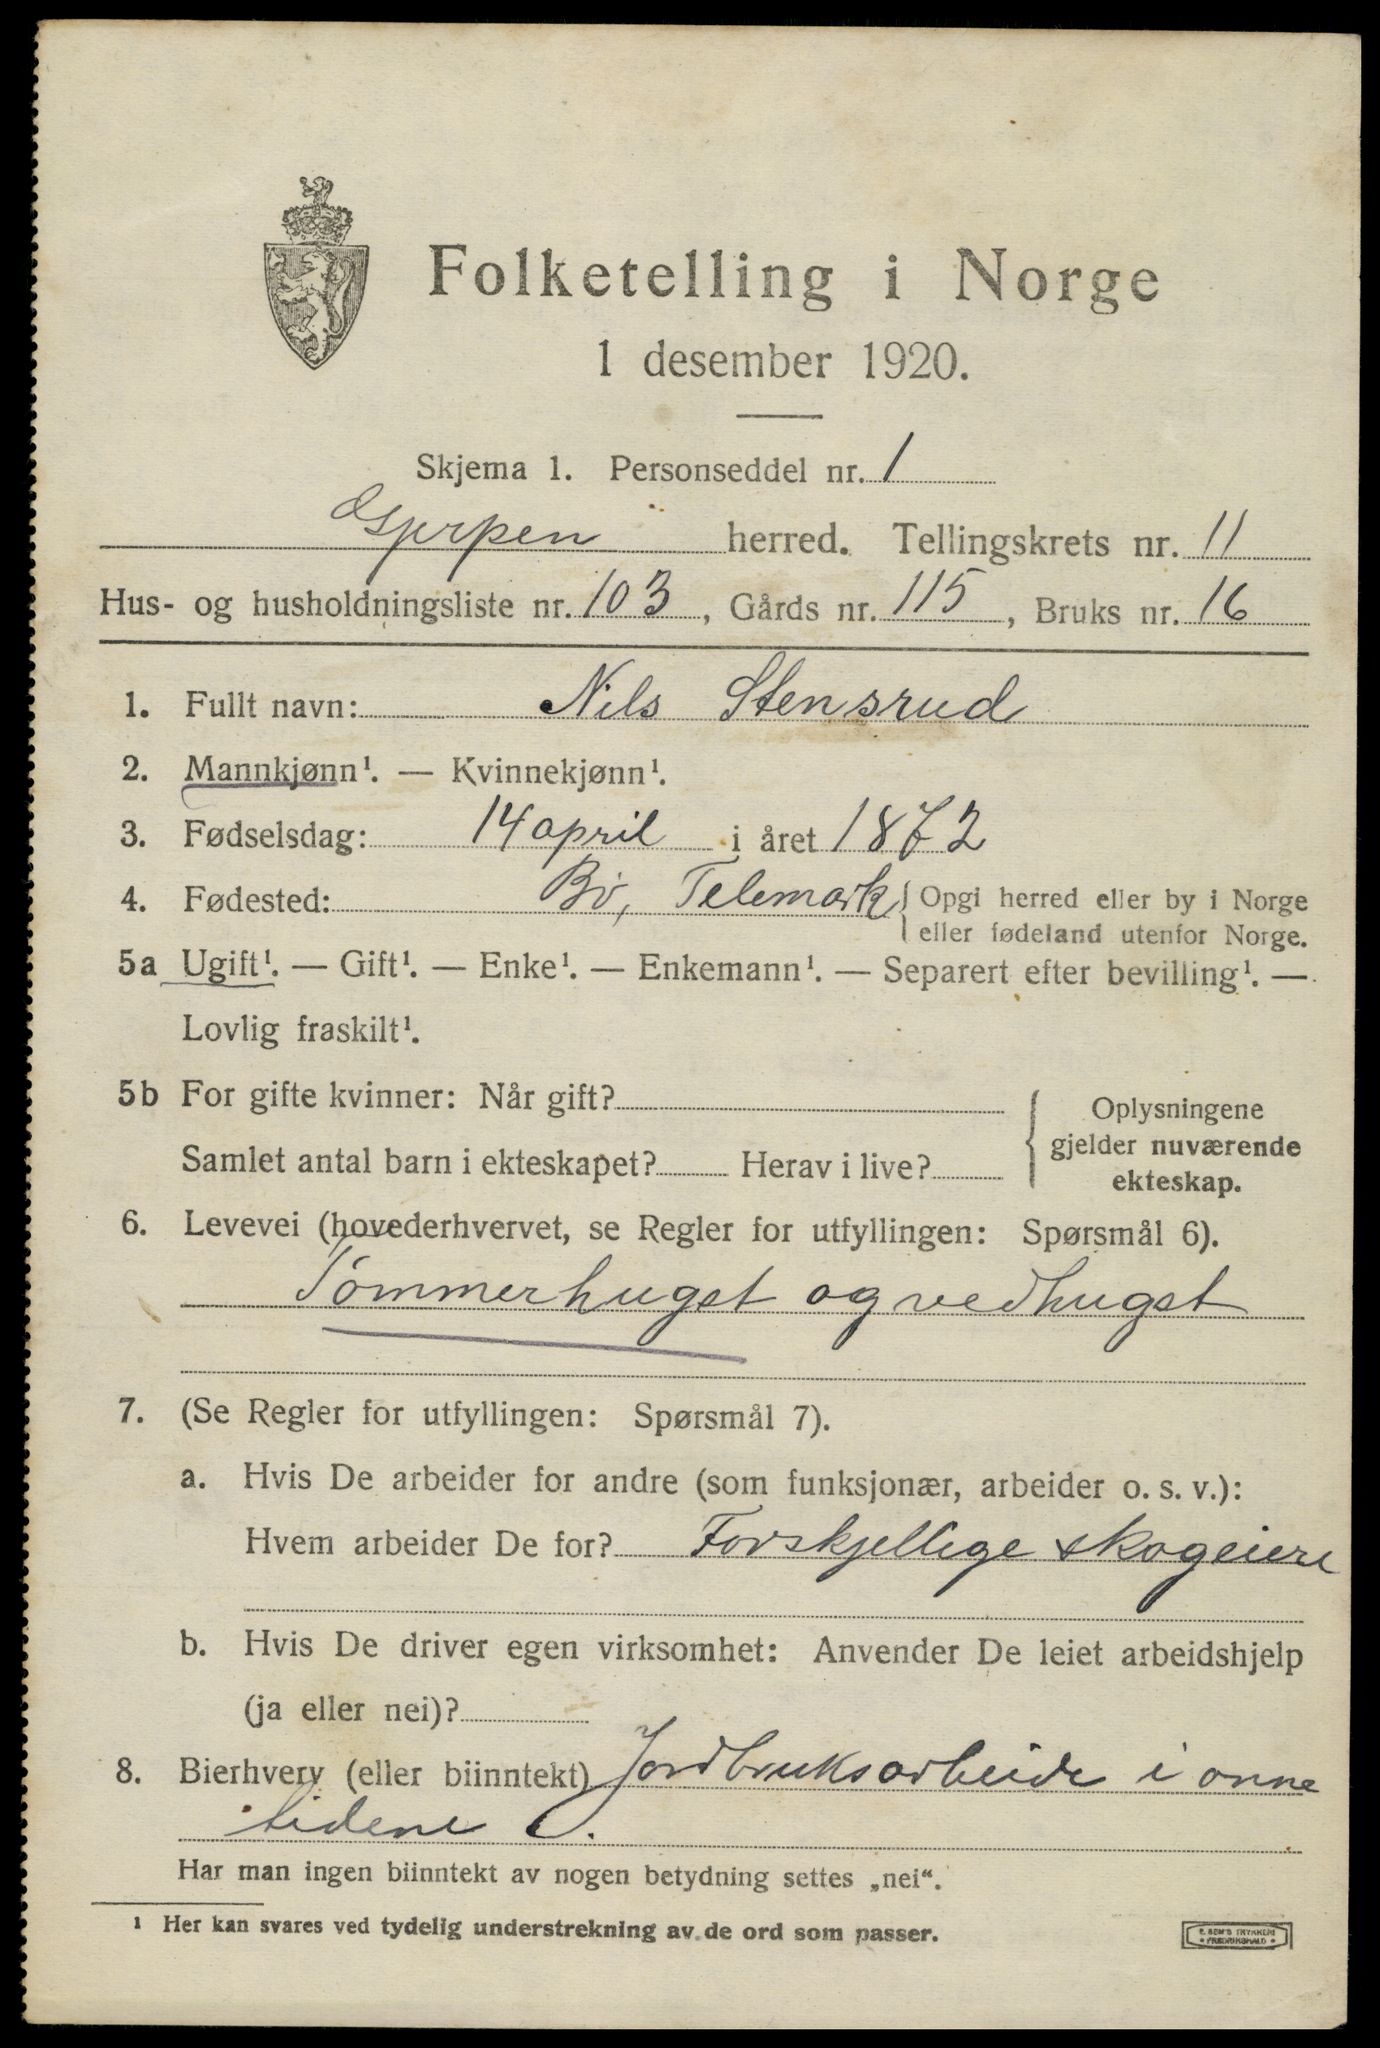 Folketelling i Norge
1 desember 1920.
Skjema 1. Personseddel nr. 1
Gjerpen herred. Tellingskrets nr. 11
Hus- og husholdningsliste nr. 103, Gårds nr. 115, Bruks nr. 16
1. Fullt navn: Nils Stensrud
2. Mannkjønn¹. — Kvinnekjønn¹.
3. Fødselsdag: 14 april i året 1872
4. Fødested: Bø, Telemark { Opgi herred eller by i Norge
eller fødeland utenfor Norge.
5a Ugift¹. — Gift¹. — Enke¹. — Enkemann¹. — Separert efter bevilling¹. —
Lovlig fraskilt¹.
5b For gifte kvinner: Når gift?
Samlet antal barn i ekteskapet? Herav i live?
{ Oplysningene
gjelder nuværende
ekteskap.
6. Levevei (hovederhvervet, se Regler for utfyllingen: Spørsmål 6).
Tømmerhugst og vedhugst
7. (Se Regler for utfyllingen: Spørsmål 7).
a. Hvis De arbeider for andre (som funksjonær, arbeider o. s. v.):
Hvem arbeider De for? Forskjellige skogeiere
b. Hvis De driver egen virksomhet: Anvender De leiet arbeidshjelp
(ja eller nei)?
8. Bierhverv (eller biinntekt) Jordbruksarbeide i onne
tidene.
Har man ingen biinntekt av nogen betydning settes „nei“.
¹ Her kan svares ved tydelig understrekning av de ord som passer.
E. SEM'S TRYKKERI
FREDRIKSHALD